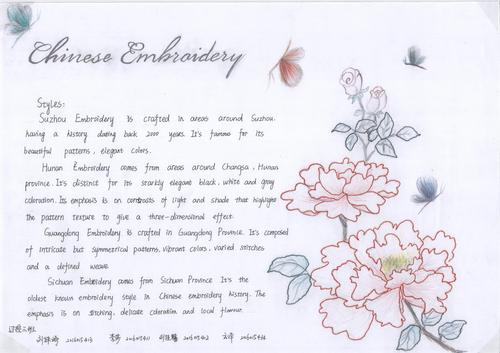 Chinese Embroidery
Styles:
Suzhou Embroidery is crafted in areas around Suzhou,
having a history dating back 2000 years. It's famous for its
beautiful patterns, elegant colors.
Hunan Embroidery comes from areas around Changsa, Hunan
province. It's distinct for its starkly elegant black, white and gray
coloration. Its emphasis is on contrasts of light and shade that highlight
the pattern texture to give a three-dimensional effect.
Guangdong Embroidery is crafted in Guangdong Province. It's composed
of intricate but symmetrical patterns, vibrant colors, varied stitches
and a defined weave.
Sichuan Embroidery comes from Sichuan Province. It's the
oldest known embroidery style in Chinese embroidery history. The
emphasis is on stitching, delicate coloration and local